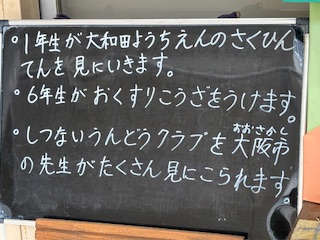 ○1年生が大和田ようちえんのさくひん
てんを見にいきます。
○6年生がおくすりこうざをうけます。
○しつないうんどうクラブを大阪市
おおさかし
の先生がたくさん見にこられます。